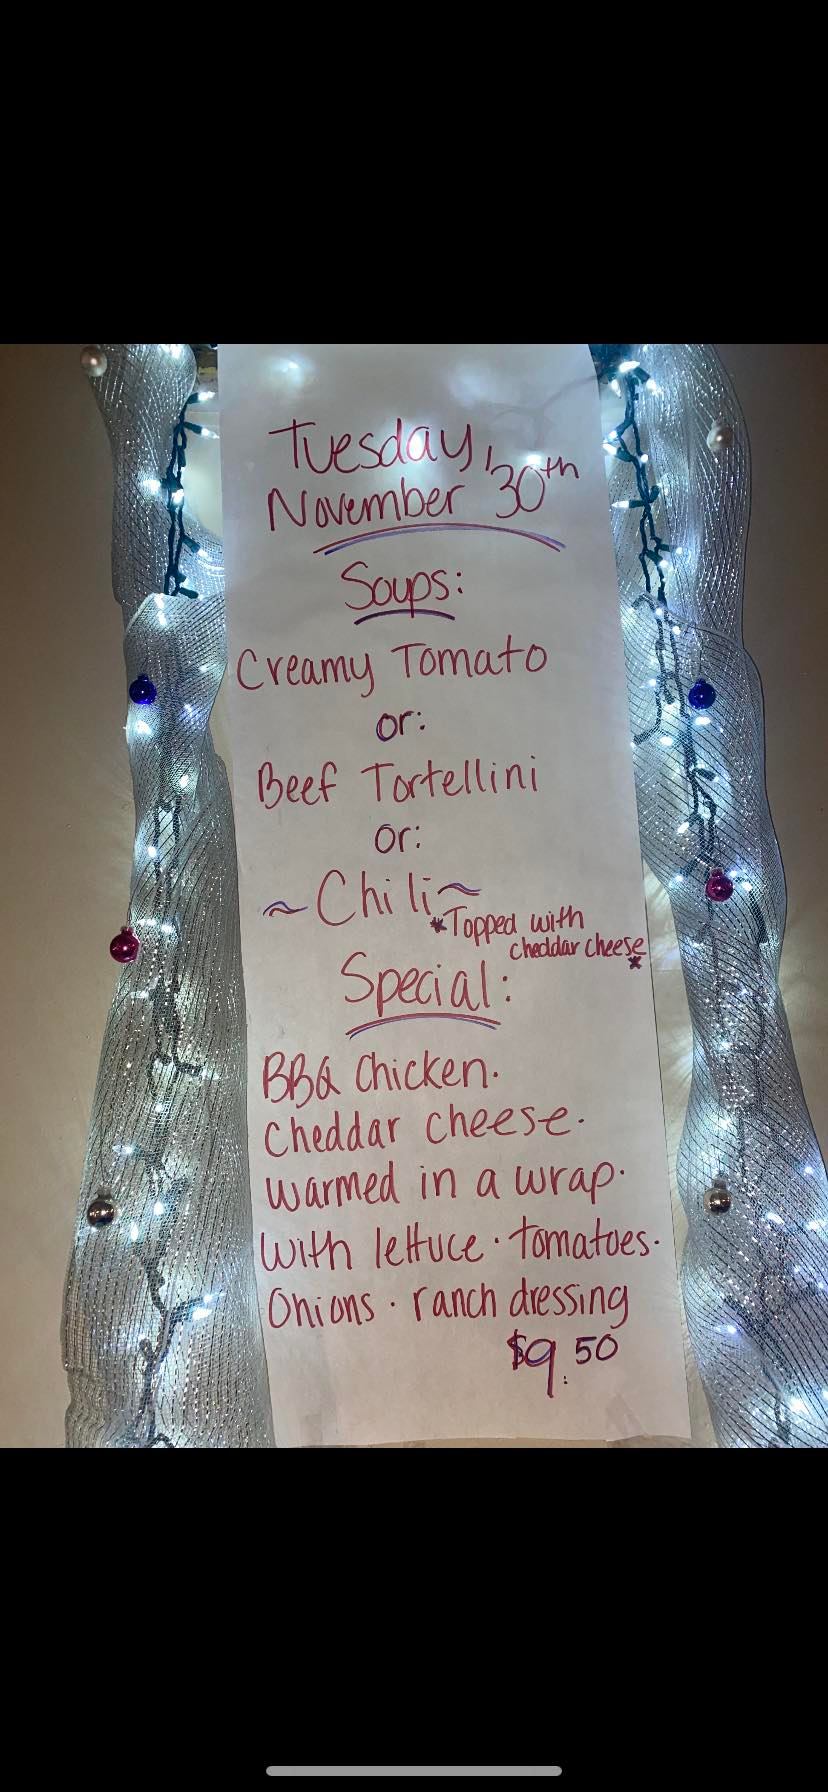 Tuesday,
November 30th
Soups:
Creamy Tomato
or:
Beef Tortellini
or:
~Chili~
*Topped with
cheddar cheese*
Special:
BBQ Chicken.
Cheddar cheese.
Warmed in a wrap.
With lettuce · tomatoes.
Onions · ranch dressing
$9.50